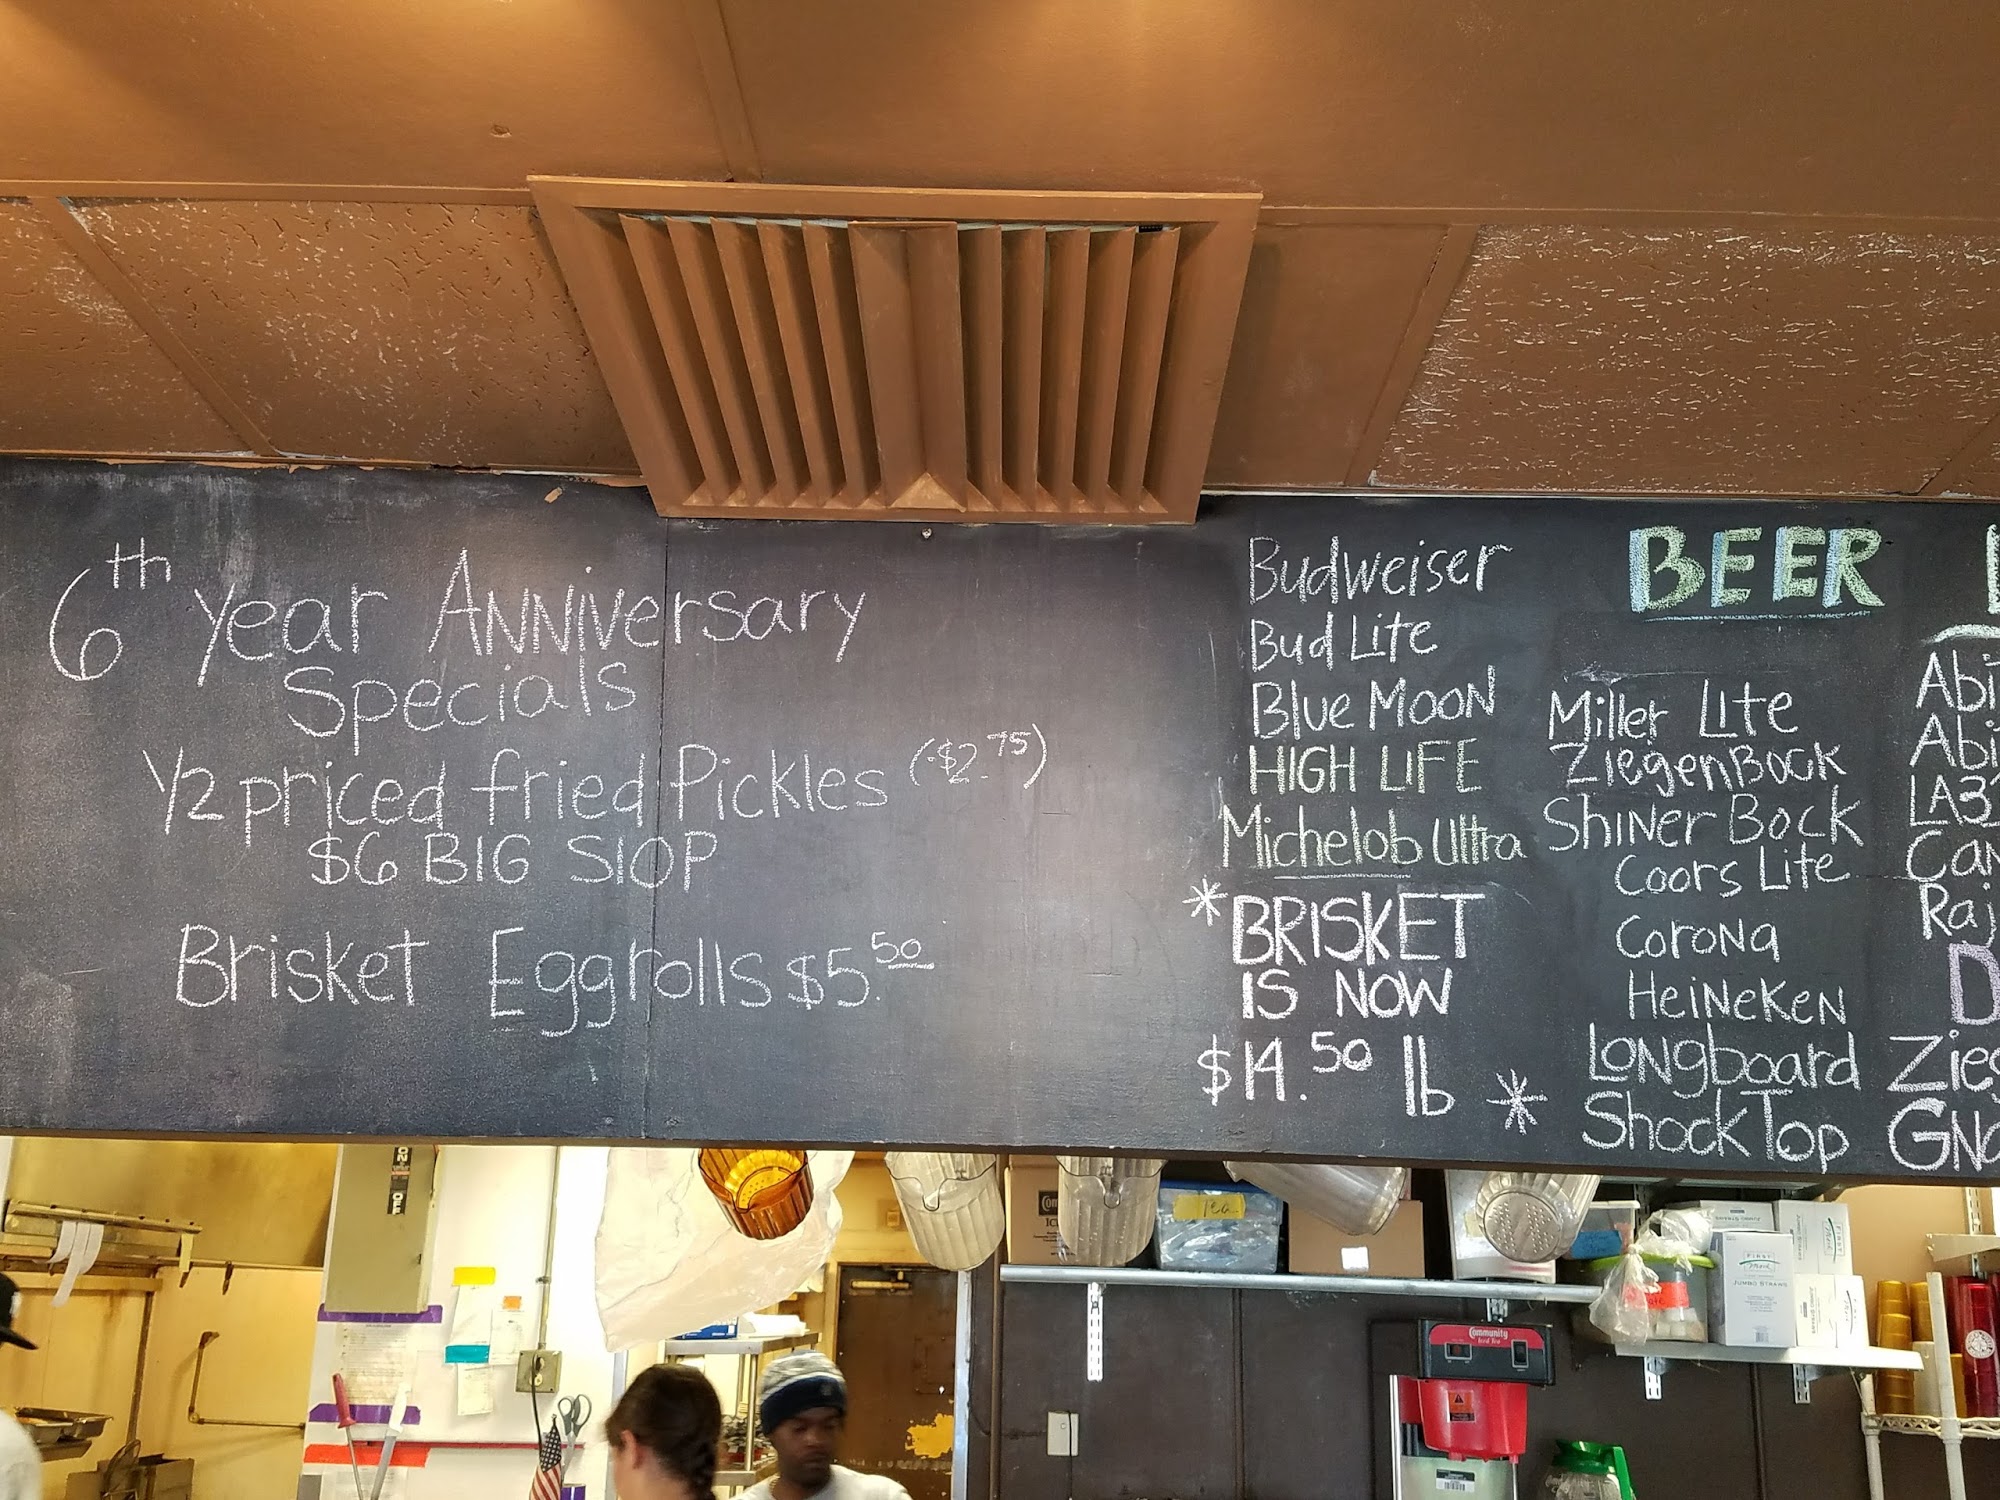 6th Year Anniversary
Specials
1/2 priced fried Pickles ($2.75)
$6 BIG SLOP
Brisket Eggrolls $5.50
BEER
Budweiser
Bud Lite
Blue Moon
HIGH LIFE
Michelob Ultra
*BRISKET
IS NOW
$14.50 lb *
Miller Lite
ZiegenBock
Shiner Bock
Coors Lite
Corona
Heineken
Longboard
ShockTop
Abi
Abi
LA3
Can
Raj
D
Zieg
GNO
Tea
FIRST
JUMBO STRAWS
Community
Iced Tea